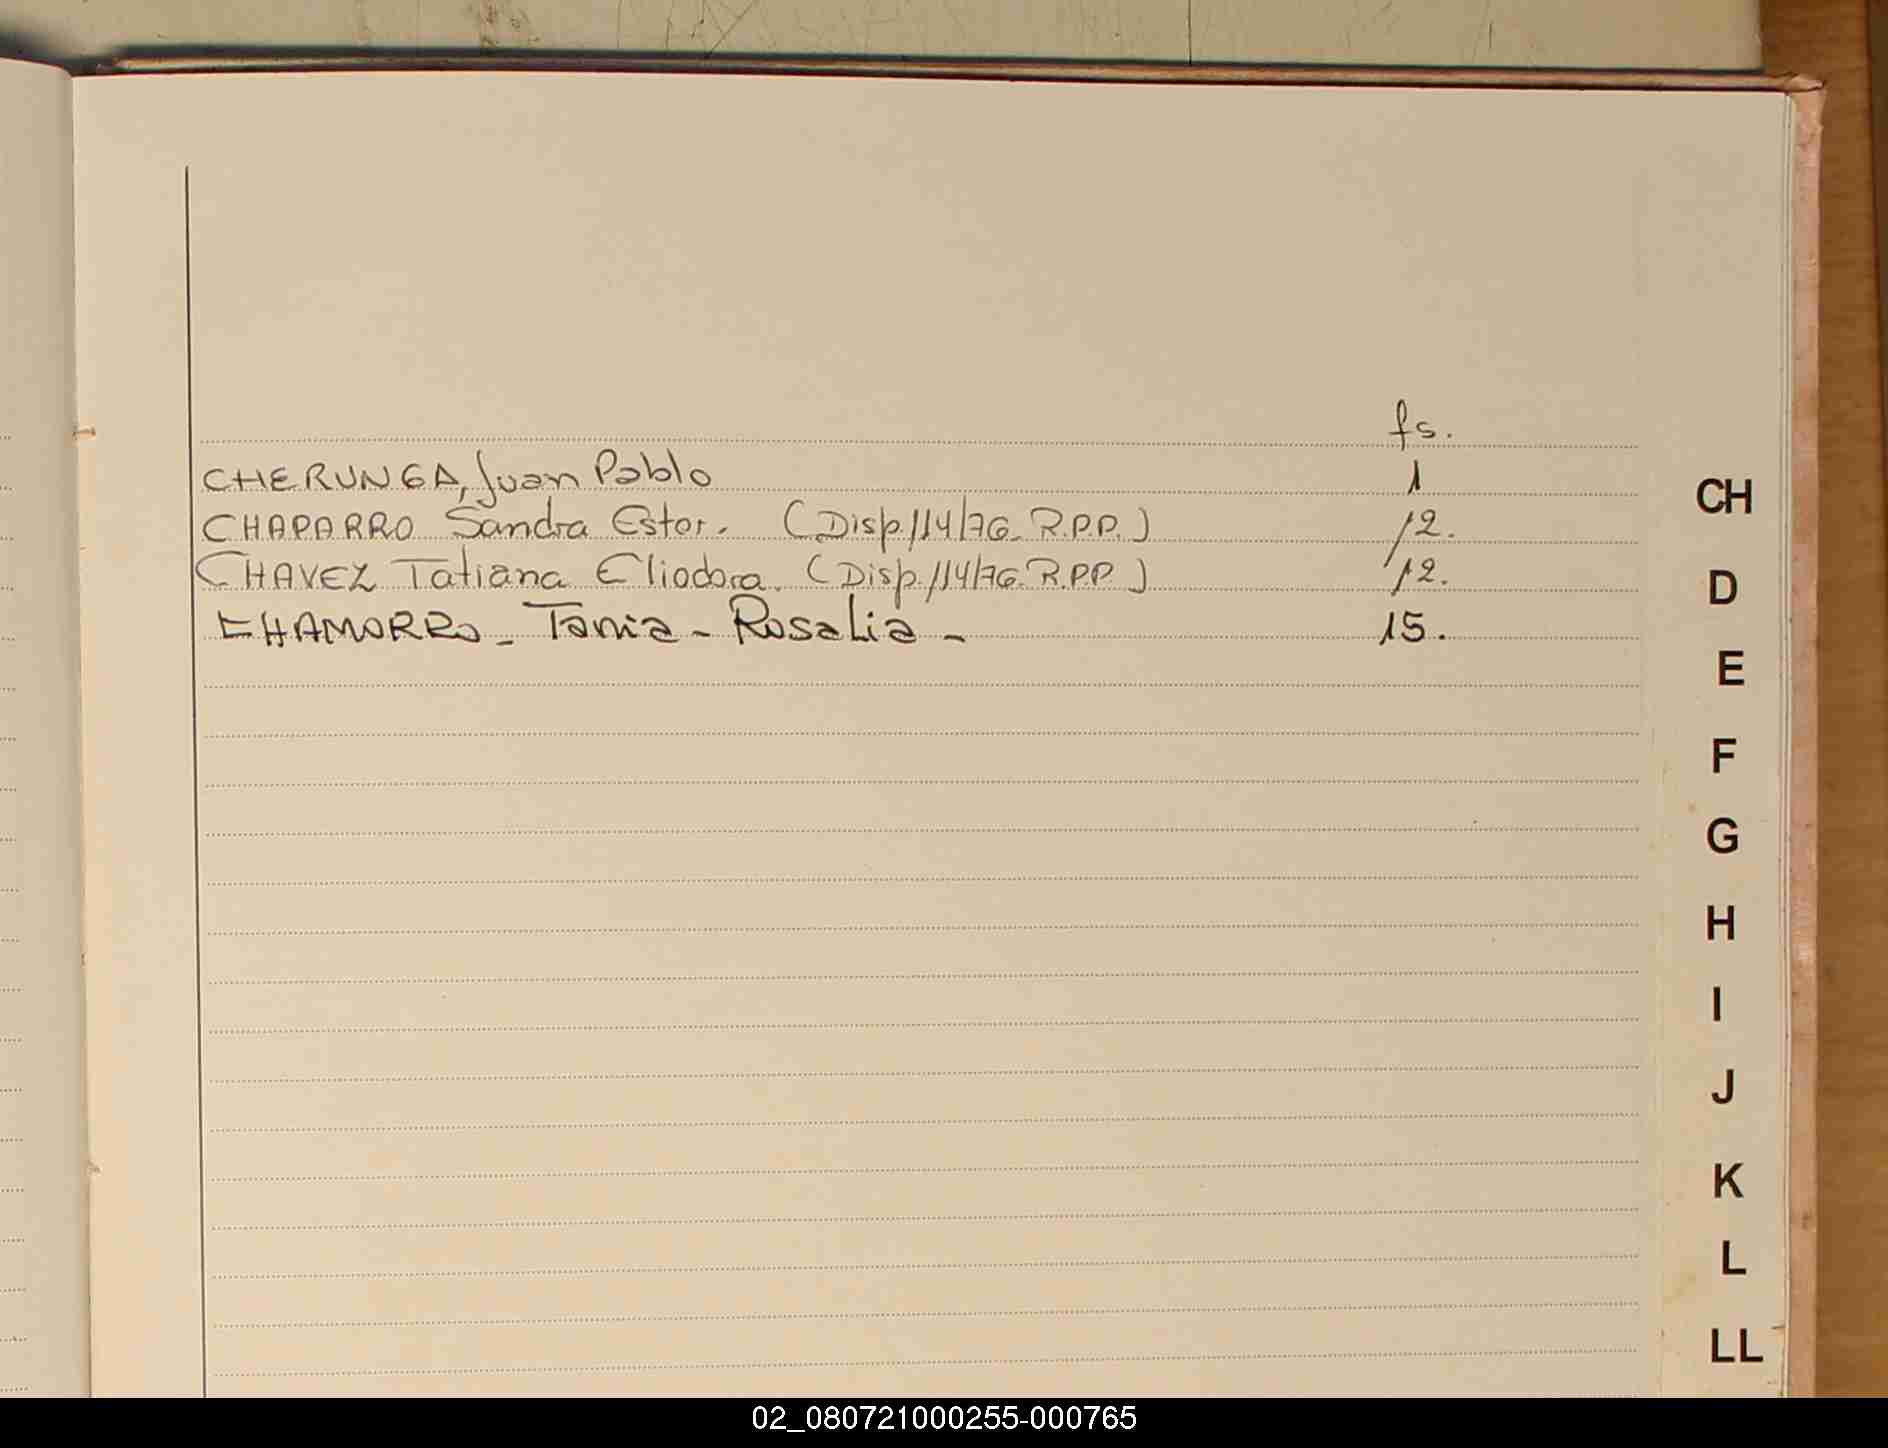 fs.
CHERUNGA, Juan Pablo 1
CHAPARRO Sandra Ester. (Disp. 114/76. R.P.P.) 12.
CHAVEZ Tatiana Eliodora. (Disp. 114/76. R.P.P.) 12.
CHAMORRO - Tania - Rosalia - 15.
CH
D
E
F
G
H
I
J
K
L
LL
02_080721000255-000765